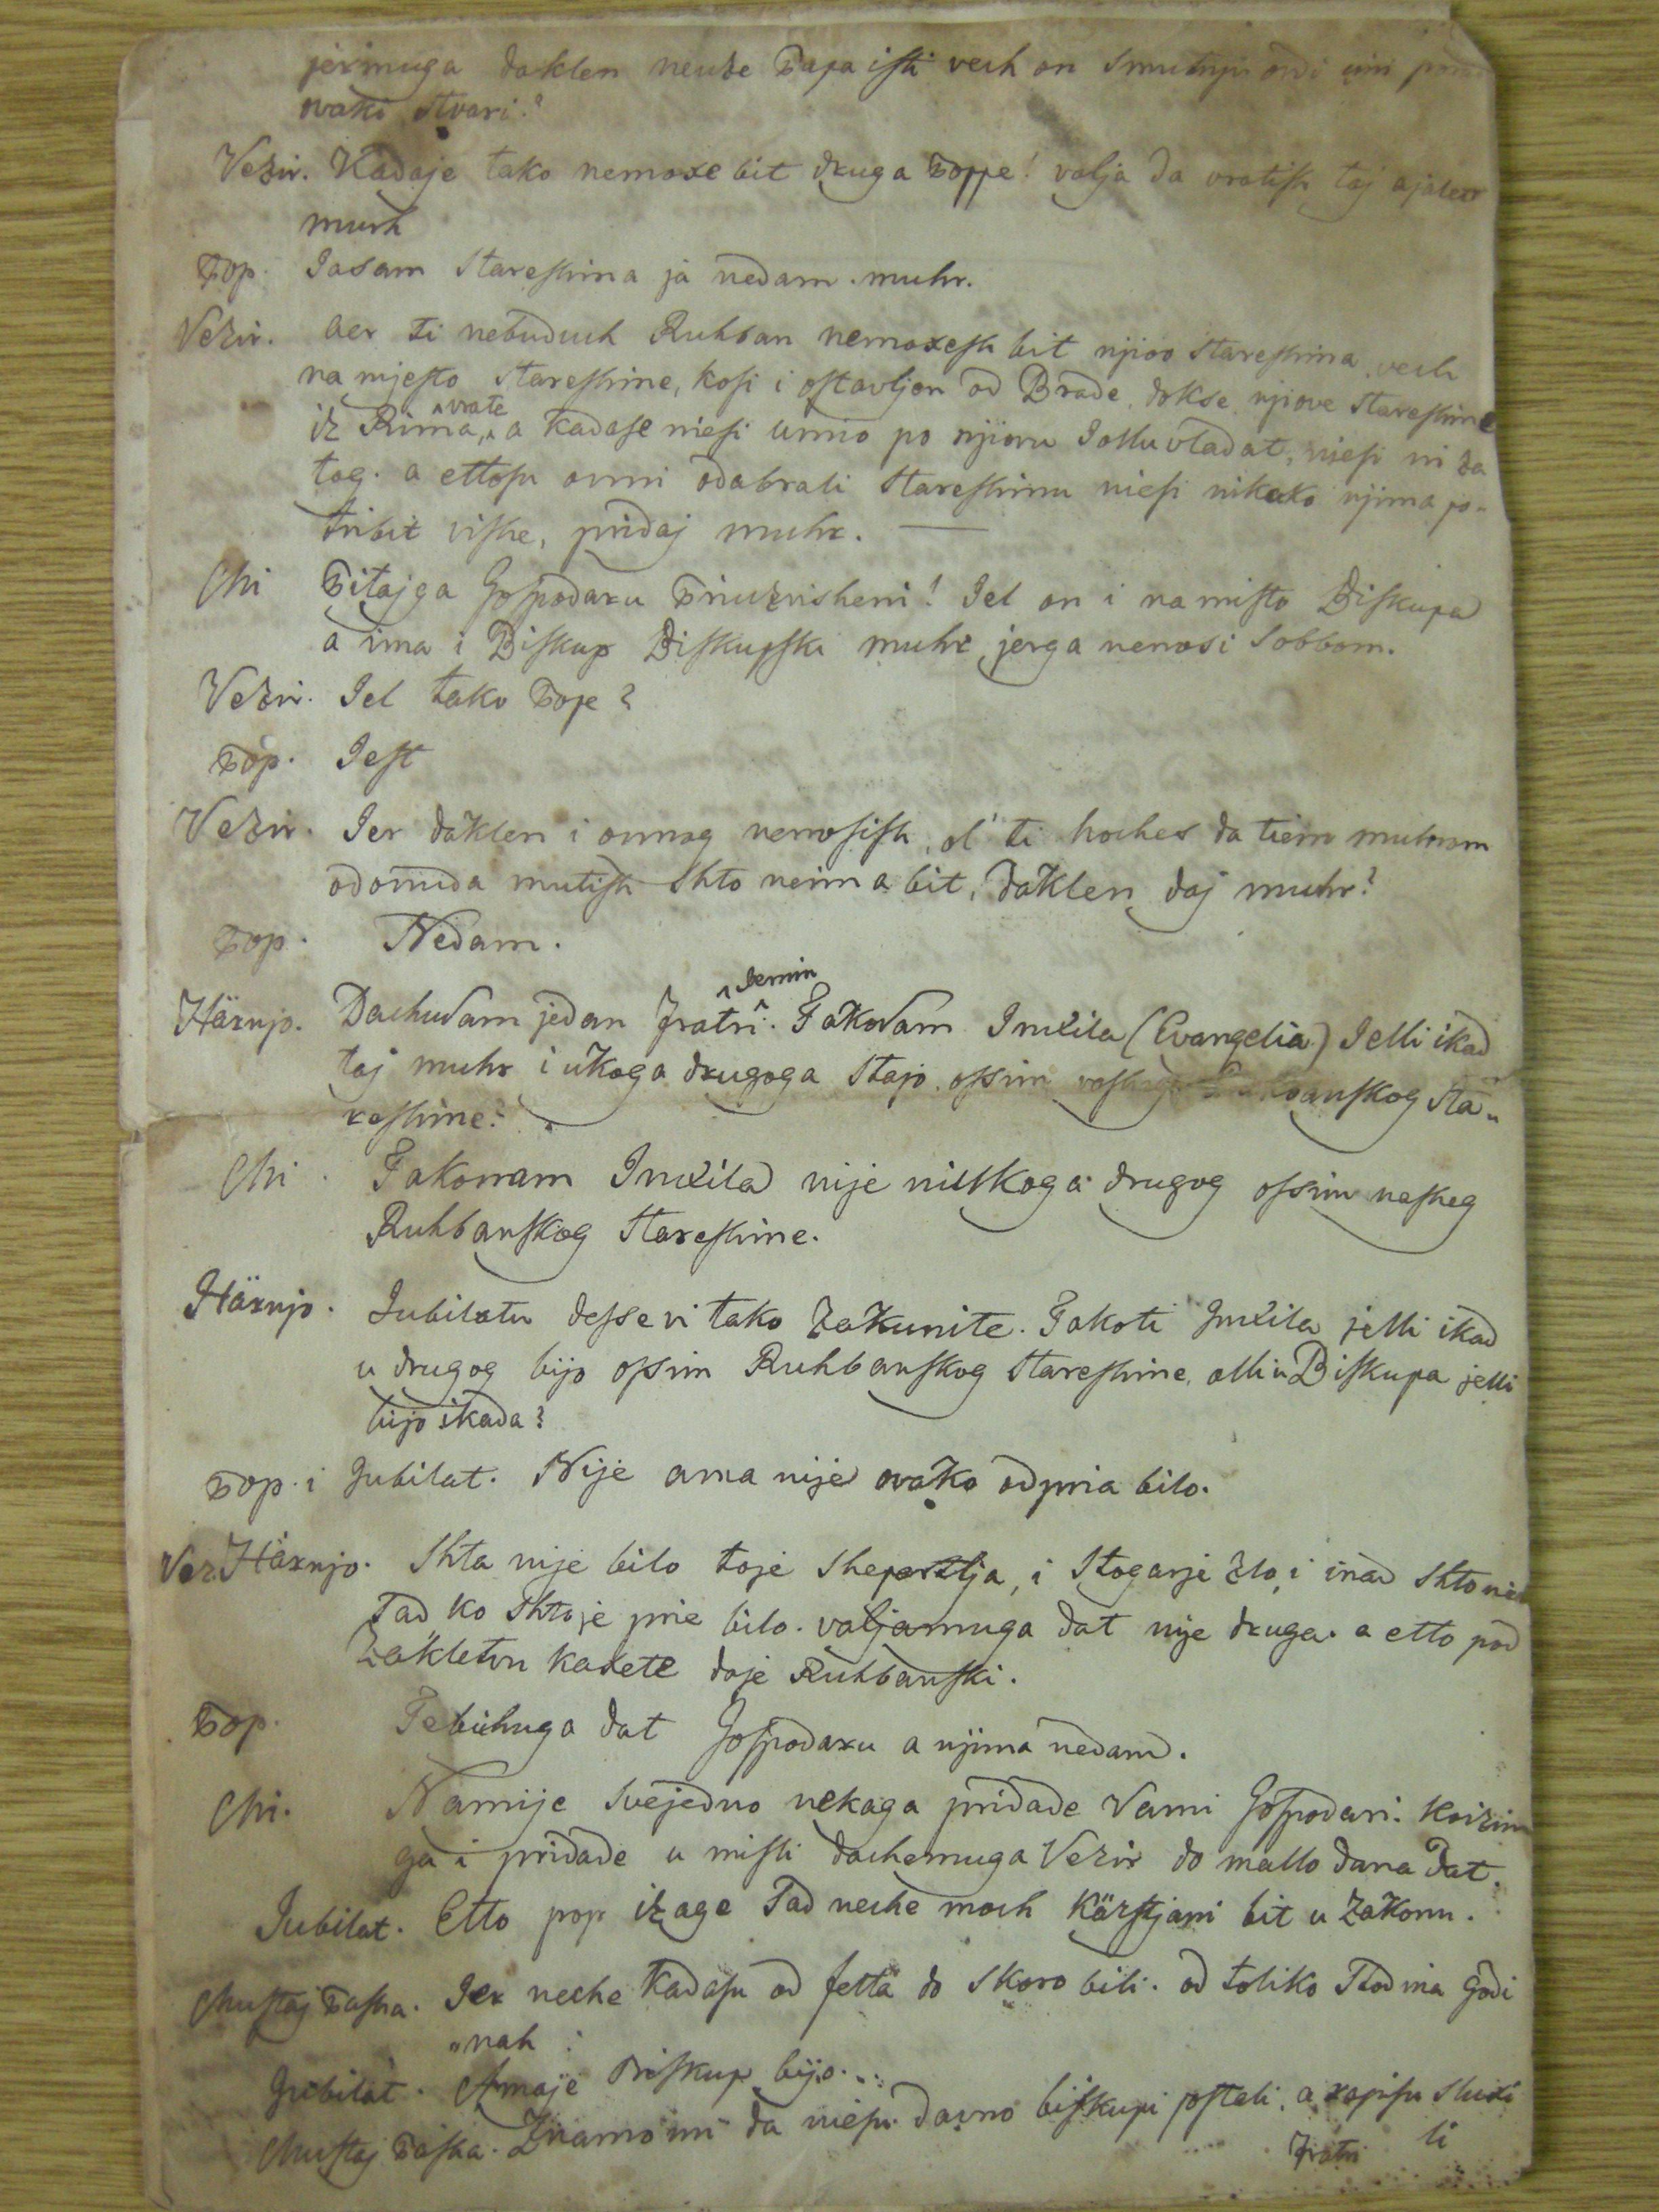 jermuga daklen neuze Papa isti vech on Smutnju ovdi
ovake Stvari?
Vezir. Kadaje tako nemoxe bit druga Poppe! valja da vratish taj
muhr
Pop. Jasam Stareshina ja nedam muhr.
Vezir. Aer ti nebuduch Ruhban nemoxesh bit njiov Stareshina, vech
na mjesto Stareshine, kosi i ostavljen od Brade, dokse njiove Stareshine
iz Rima, vrate a kadase niesi umio po njiovu vladat, niesi ni za
tog. a ettosu ovmi odabrali Stareshinu niesi nikako njima po-
tribit vishe, pridaj muhr.
Mi Pitajga Gospodaru Priuzvisheni! Jel on i na misto Biskupa
a ima i Biskup Biskupski muhr, jerga nenosi Sobbom.
Vezir. Jel tako Pope?
Pop. Jest
Vezir. Jer daklen i onnog nenosish, ol' ti hoches da tiem muhrom
odonuda mutish Shto neima bit, daklen daj muhr?
Pop. Nedam.
Härnjo. Dachuvam jedan Fratri. Jemin Takovam Inxila (Evangelia) Jelli ikad
taj muhr i ukoga drugoga Stajo, ossim Sta-
reshine?
Mi Takonam Inxila nije niukoga drugog ossim nasheg
Ruhbanskog Stareshine.
Härnjo. Jubilatu desse vi tako Zakunite. Takoti Inxila jelli ikad
u drugog bijo ossim Ruhbanskog Stareshine, olli u Biskupa jelli
bijo ikada?
Pop. i Jubilat. Nije ama nije ovako odpria bilo.
Vez. Härnjo. Shta nije bilo toje Sheperlja, i Stogarje Zlo, i inad Shto
Tad ko Shtoje prie bilo. valjamuga dat nije druga. a etto pod
Zakletvu kaxete daje Ruhbanski.
Pop. Tebichuga dat Gospodaru a njima nedam.
Mi. Namije Svejedno nekaga pridade Vami Gospodari.
ga i pridade u misli dachemuga Vezir do mallo dana dat.
Jubilat. Etto pop izage Tad neche moch Kärstjani bit u Zakonu.
Mustaj Pasha. Jer neche kadasu od fetta do Skoro bili. od toliko Stotina Godi
"nah:
Jubilat. Amaje Biskup bijo...
Mustaj Pasha. Znamo mi da niesu davno biskupi postali, a Sluxi
li
Fratri